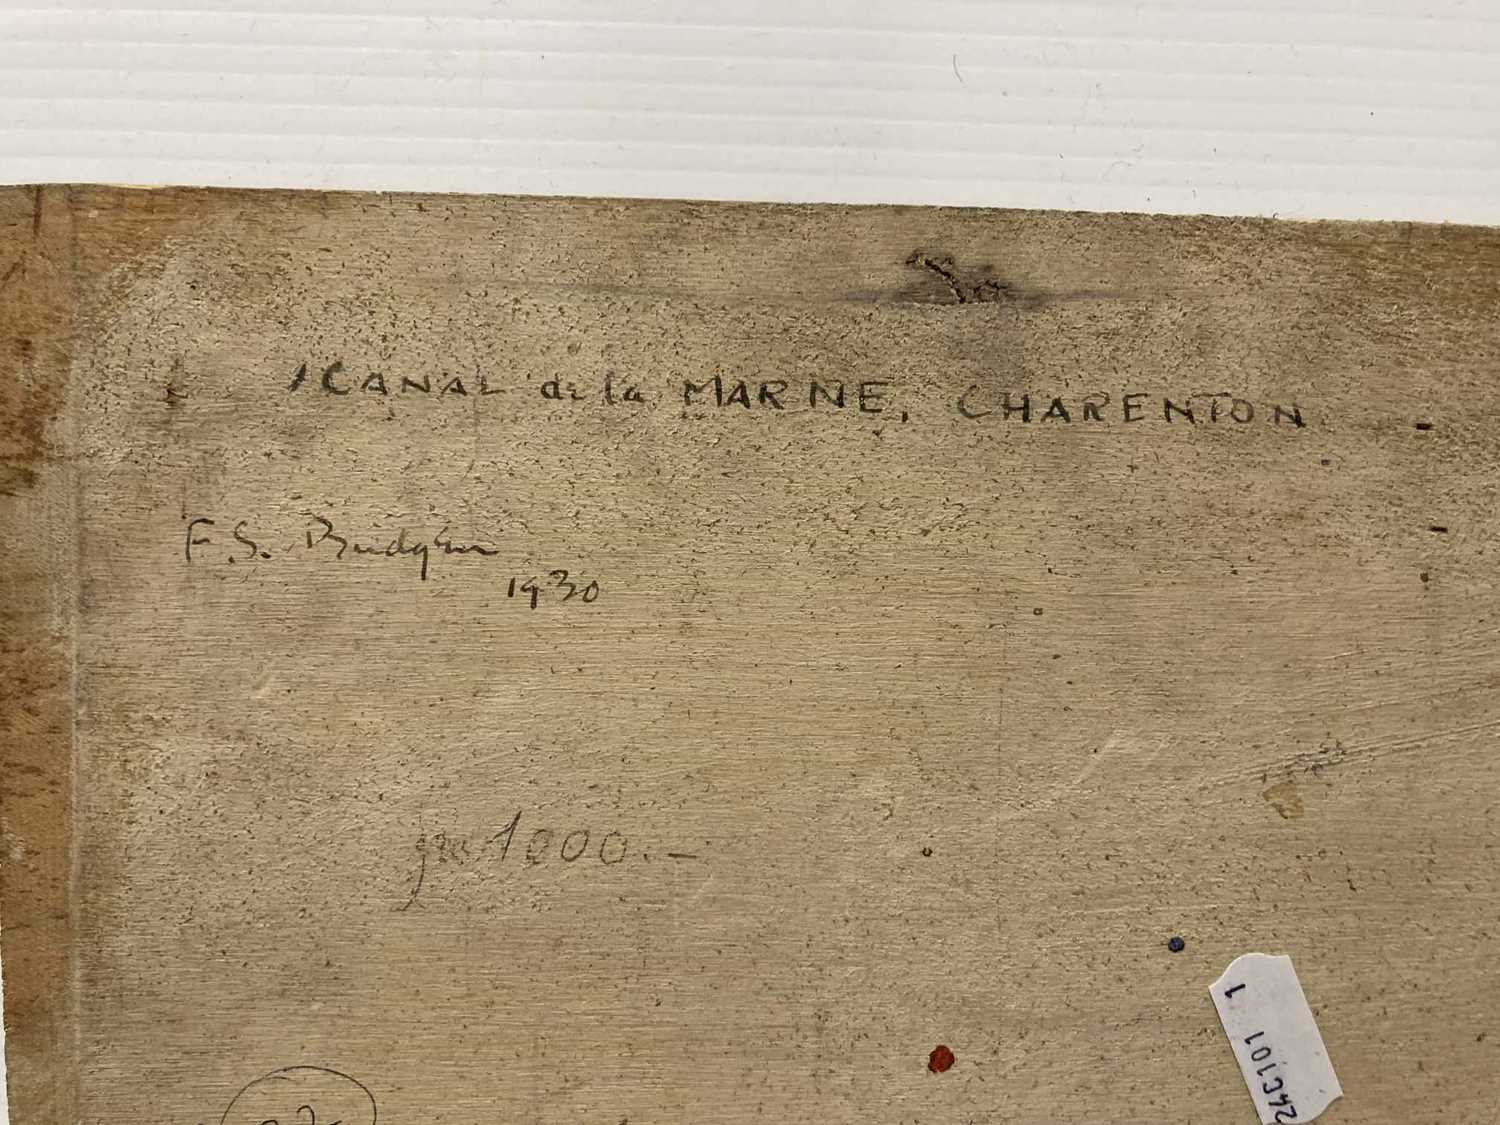 CANAL de la MARNE, CHARENTON
F.S. Bridgeu
1930
1000.—
24C101 1